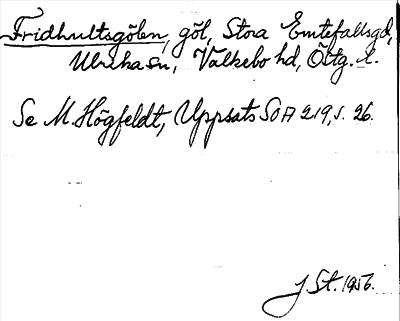 Fridhultsgölen, göl, Stora Emtefallsgd,
Ulrika sn, Valkebo hd, Östg. l.
Se M. Högfeldt, Uppsats SOA 219, s. 26.
J St. 1956.